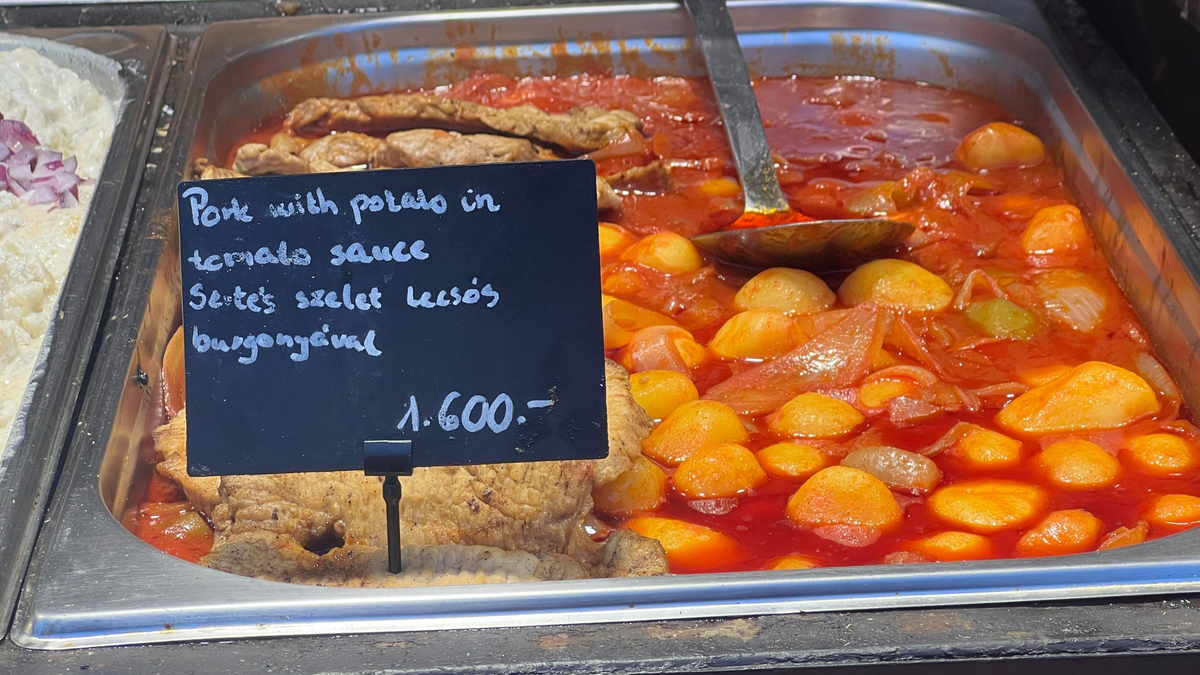 Pork with potato in
tomato sauce
Sertés szelet lecsós
burgonyával
1.600.-